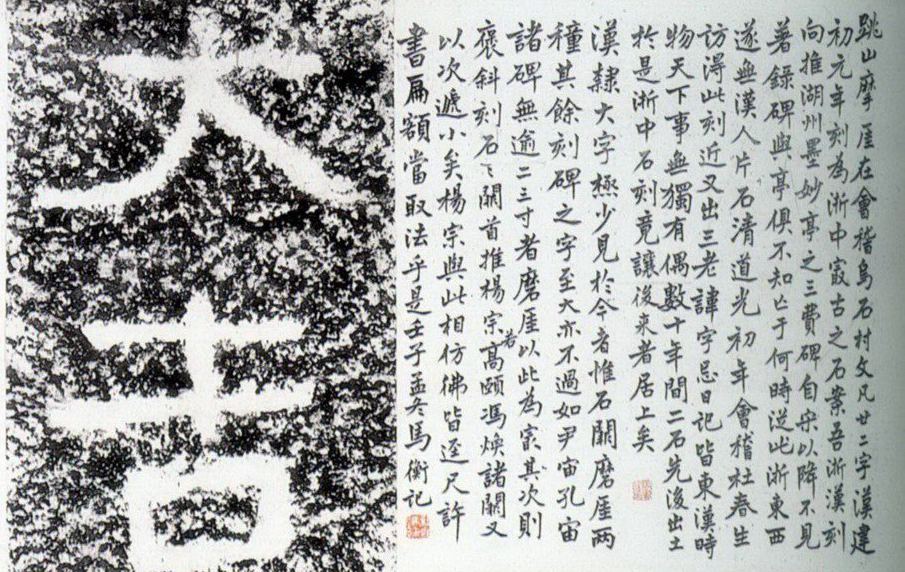 跳山摩厓在會稽烏石村文凡廿二字漢建
初元年刻為淅中冣古之石案吾淅漢刻
向推湖州墨妙亭之三費碑自宋以降不見
著錄碑與亭俱不知亡于何時從此淅東西
遂無漢人片石清道光初年會稽杜春生
訪得此刻近又出三老諱字忌日記皆東漢時
物天下事無獨有偶數十年間二石先後出土
於是淅中石刻竟讓後来者居上矣
漢隸大字極少見於今者惟石闕磨厓兩
種其餘刻碑之字至大亦不過如尹宙孔宙
諸碑無逾二三寸者磨厓以此為宗其次則
褒斜刻石〻闕首推楊宗若高頤馮煥諸闕又
以次遞小矣楊宗與此相仿彿皆逕尺許
書扁額當取法乎是壬子孟冬馬衡記
大吉